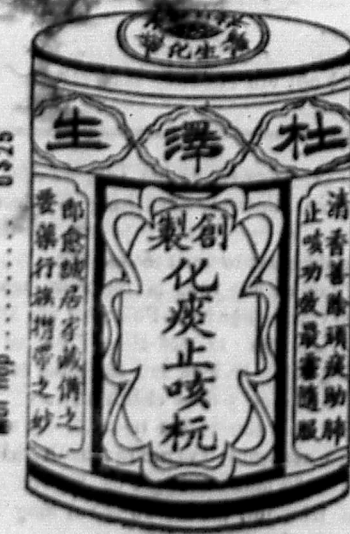 杜澤生
創製
化痰止咳杬
清香善除頑痰助肺
止咳功效最靈隨服
即愈誠居家藏備之
藥行旅携帶之妙